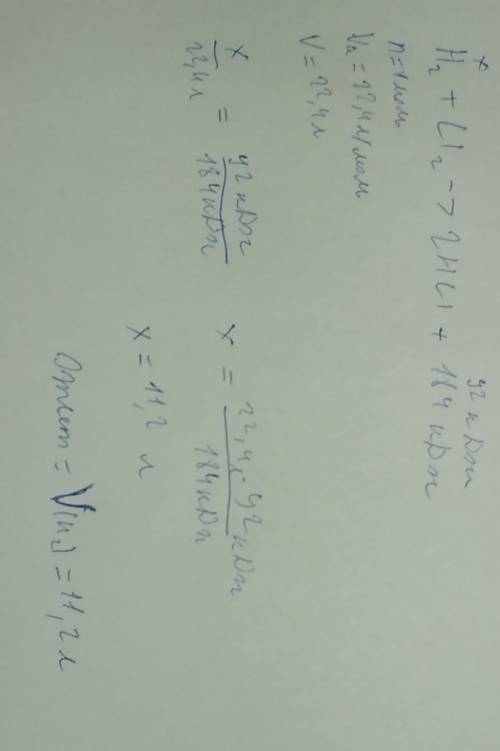 x 92 кДж
H₂ + Cl₂ -> 2HCl + 184 кДж
n=1моль
Vм = 22,4 л/моль
V = 22,4 л
x / 22,4л = 92 кДж / 184 кДж
x = 22,4 · 92 кДж / 184 кДж
x = 11,2 л
Ответ = V(H₂) = 11,2 л